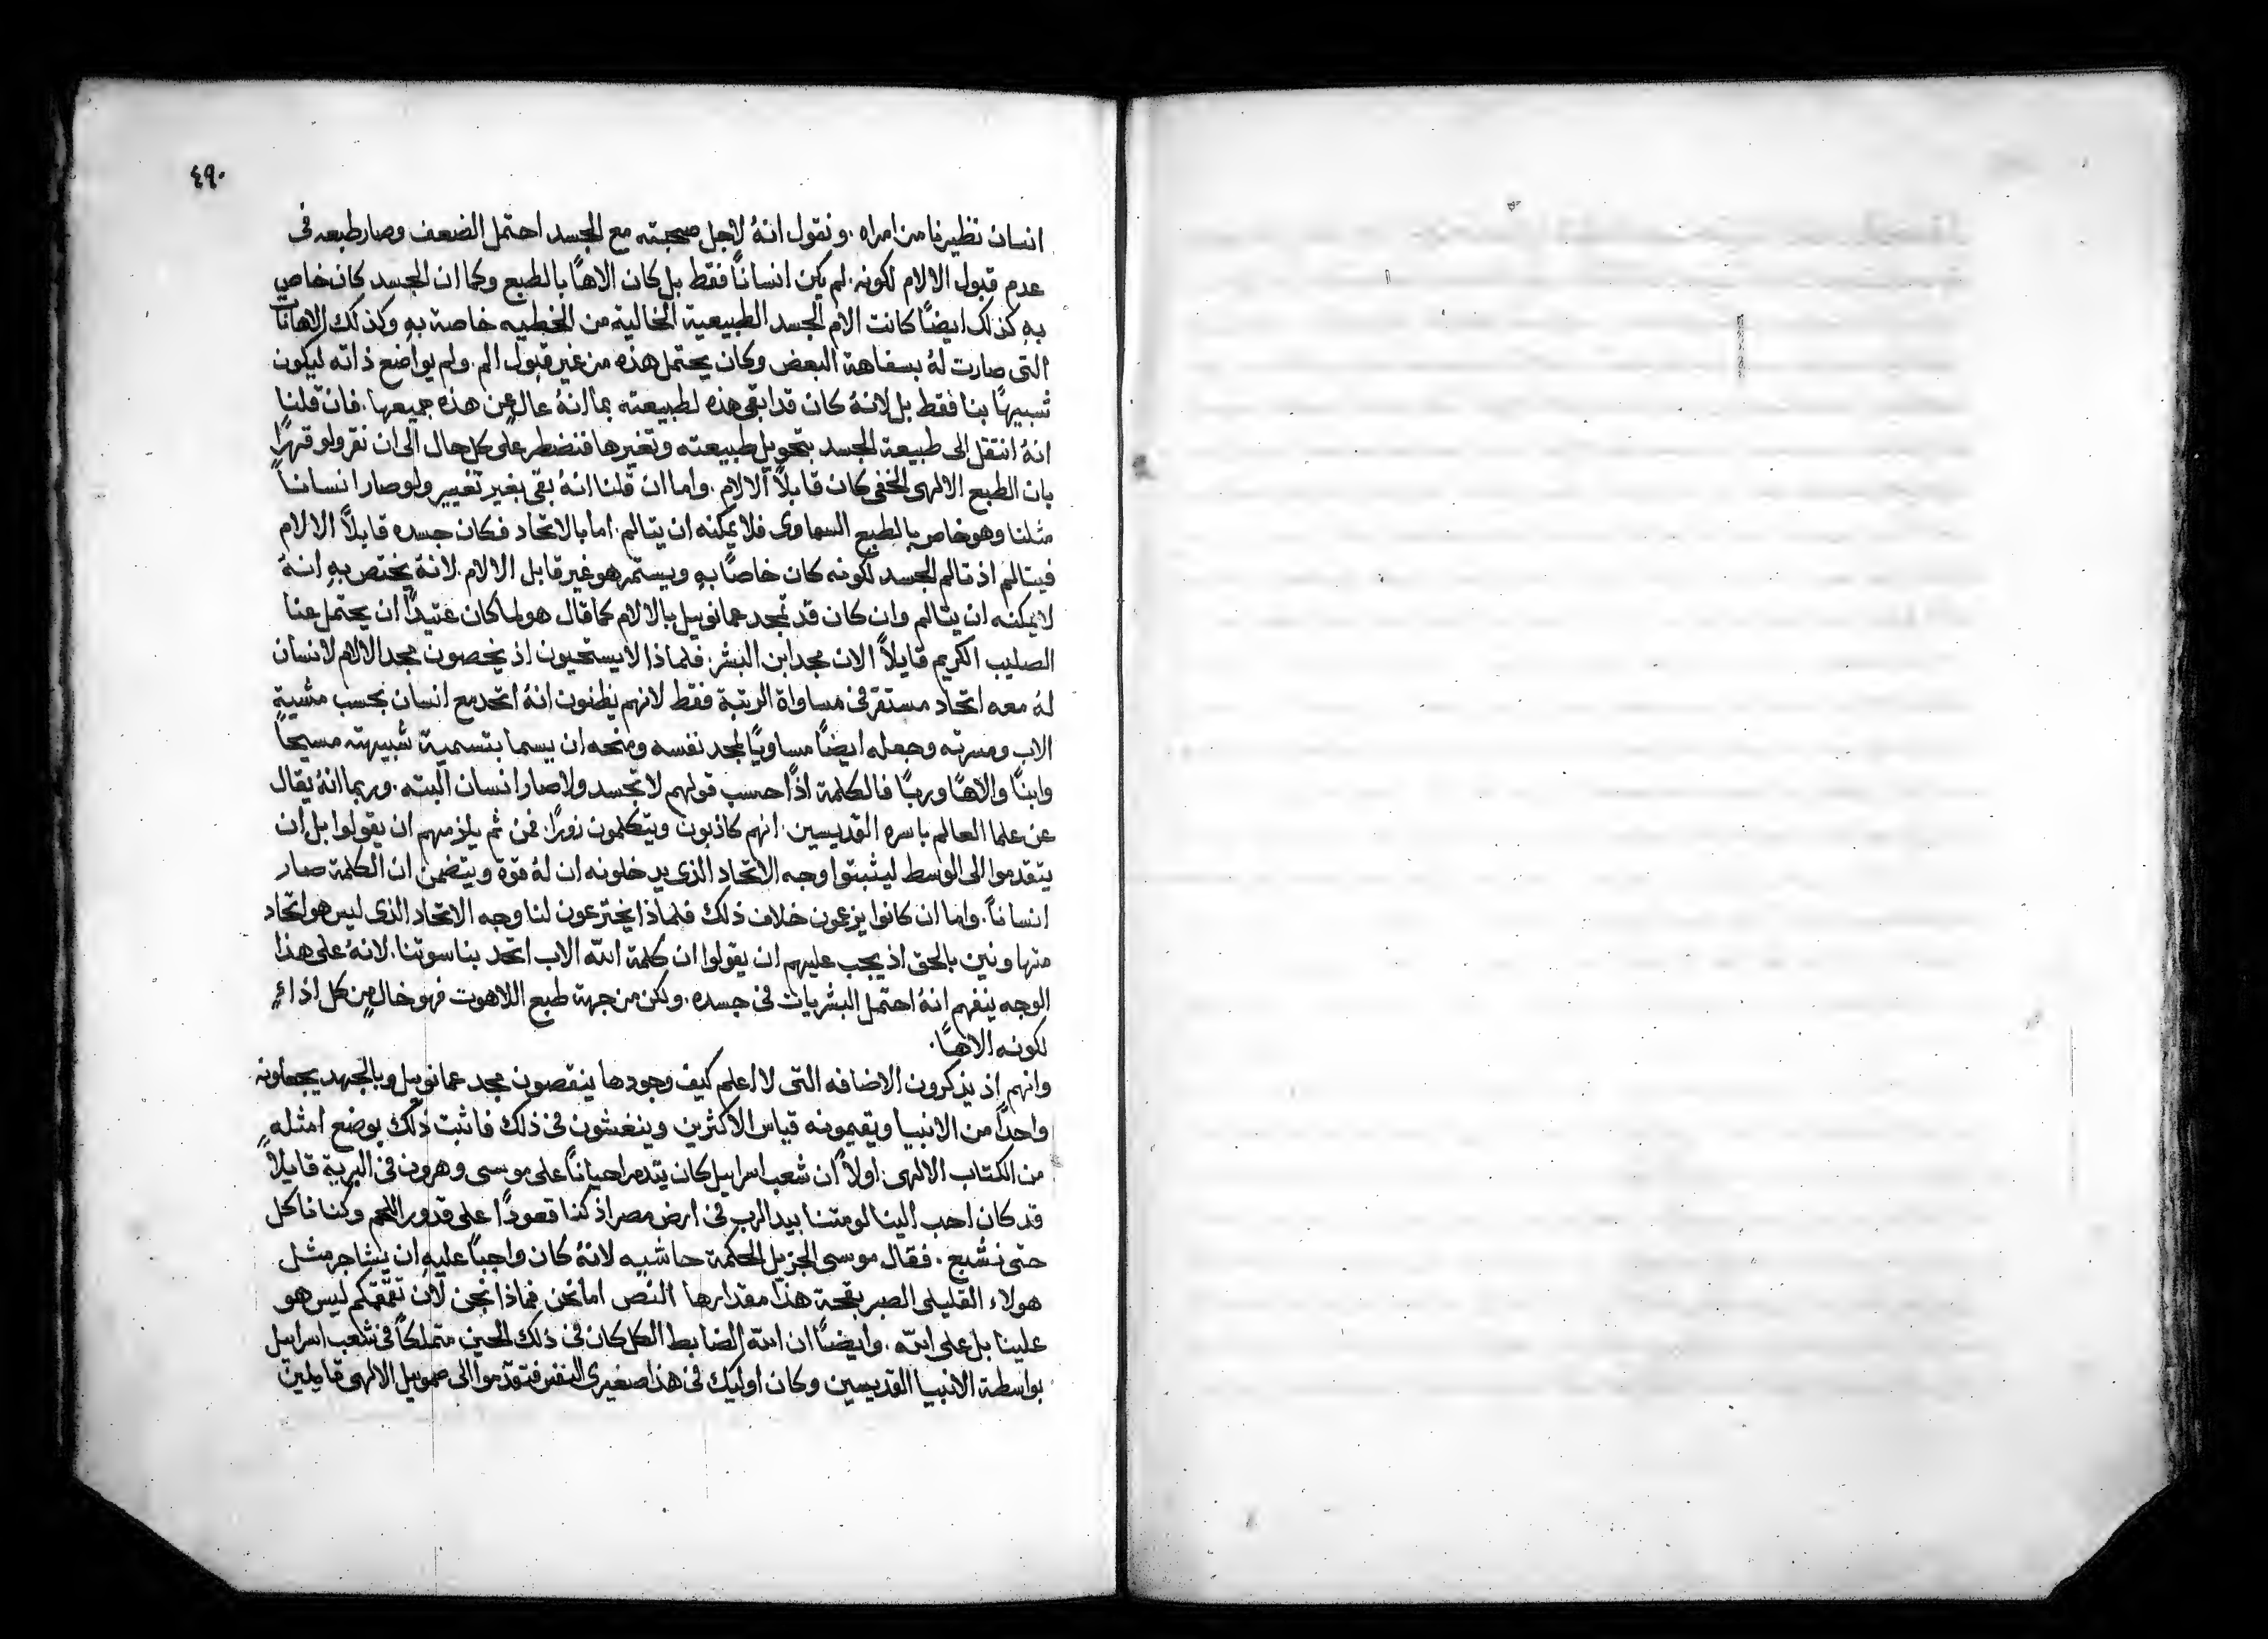 ٤٩٠
انسان نظيرنا من امراه . ونقول انهُ لاجل صحبته مع الجسد احتمل الضعف وصار طبعه فى
عدم قبول الالام لكونه . لم يكن انسانًا فقط بل كان الاهًا بالطبع وكما ان الجسد كان خاص
بهِ كذلك ايضًا كانت الام الجسد الطبيعية الخالية من الخطيه خاصة بهِ وكذلك الاهانات
التى صارت لهُ بسفاهة البعض وكان يحتمل هذه من غير قبول الم . ولم يواضع ذاته ليكون
شبيهًا بنا فقط بل لانهُ كان قد ابقى هذه لطبيعته بما انهُ عالٍ عن هذه جميعها . فان قلنا
انهُ انتقل الى طبيعة الجسد بتحويل طبيعته وتغيرها فنضطر على كل حال الى ان نقر ولو قهرًا
بان الطبع الالهى الخفى كان قابلاً الالام . واما ان قلنا انهُ بقى بغير تغيير ولو صار انسانًا
مثلنا وهو خاص بالطبع السماوى فلا يمكنه ان يتالم . اما بالاتحاد فكان جسده قابلاً الالام
فيتالم اذ تالم الجسد لكونه كان خاصًا بهِ ويستمر هو غير قابل الالام . لانهُ يختص بهِ انهُ
لا يمكنه ان يتالم وان كان قد تمجد عمانوييل بالالام كما قال هو لما كان عتيدًا ان يحتمل عنا
الصليب الكريم قايلاً الان مجد ابن البشر . فلماذا لا يستحيون اذ يخصون مجد الالام لانسان
لهُ معه اتحاد مستقر فى مساواة الرتبة فقط لانهم يظنون انهُ اتحد مع انسان بحسب مشيةِ
الاب ومسرته وجعله ايضًا مساويًا لمجد نفسه ومنحه ان يسما بتسمية شبيهته مسيحًا
وابنًا والاهًا وربًا فالكلمة اذًا حسب قولهم لا تجسد ولا صار انسان البته . وربما انهُ يقال
عن علما العالم باسره القديسين . انهم كاذبون ويتكلمون زورًا . فمن ثم يلزمهم ان يقولوا بل ان
يتقدموا الى الوسط ليثبتوا وجه الاتحاد الذى يدخلونه ان لهُ قوة ويتضمن ان الكلمة صار
انسانًا . واما ان كانوا يزعمون خلاف ذلك فلماذا يخترعون لنا وجه الاتحاد الذى ليس هو اتحاد
متهاونين بالحق اذ يجب عليهم ان يقولوا ان كلمة الله الاب اتحد بناسوتنا . لانهُ على هذا
الوجه ينفهم انهُ احتمل البشريات فى جسده . ولكن من جهة طبع اللاهوت فهو خالٍ من كل اذاءٍ
لكونه الاهًا .
وانهم اذ يذكرون الاضافه التى لا اعلم كيف وجودها ينقصون مجد عمانوييل وبالجهد يجعلونه
واحدًا من الانبيا ويقيمونه قياس الاكثرين وينغشون فى ذلك فاثبت ذلك بوضع امثلهٍ
من الكتاب الالهى . اولاً ان شعب اسراييل كان يتدمر احيانًا على موسى وهرون فى البرية قايلاً
قد كان احب الينا لو متنا بيد الرب فى ارض مصر اذ كنا قعودًا على قدور اللحم وكنا ناكل
حتى نشبع . فقال موسى الجزيل الحكمة حاشيه لانهُ كان واجبًا عليهِ ان يشاجر مثل
هولاء القليلى الصبر بقحة هذا مقدارها النص اما نحن فماذا نحن لان تقمقمكم ليس هو
علينا بل على الله . وايضًا ان الله الضابط الكل كان فى ذلك الحين متملكًا فى شعب اسراييل
بواسطة الانبيا القديسين وكان اوليك فى هذا صغيرى النفس فتقدموا الى صمويل الالهى قايلين